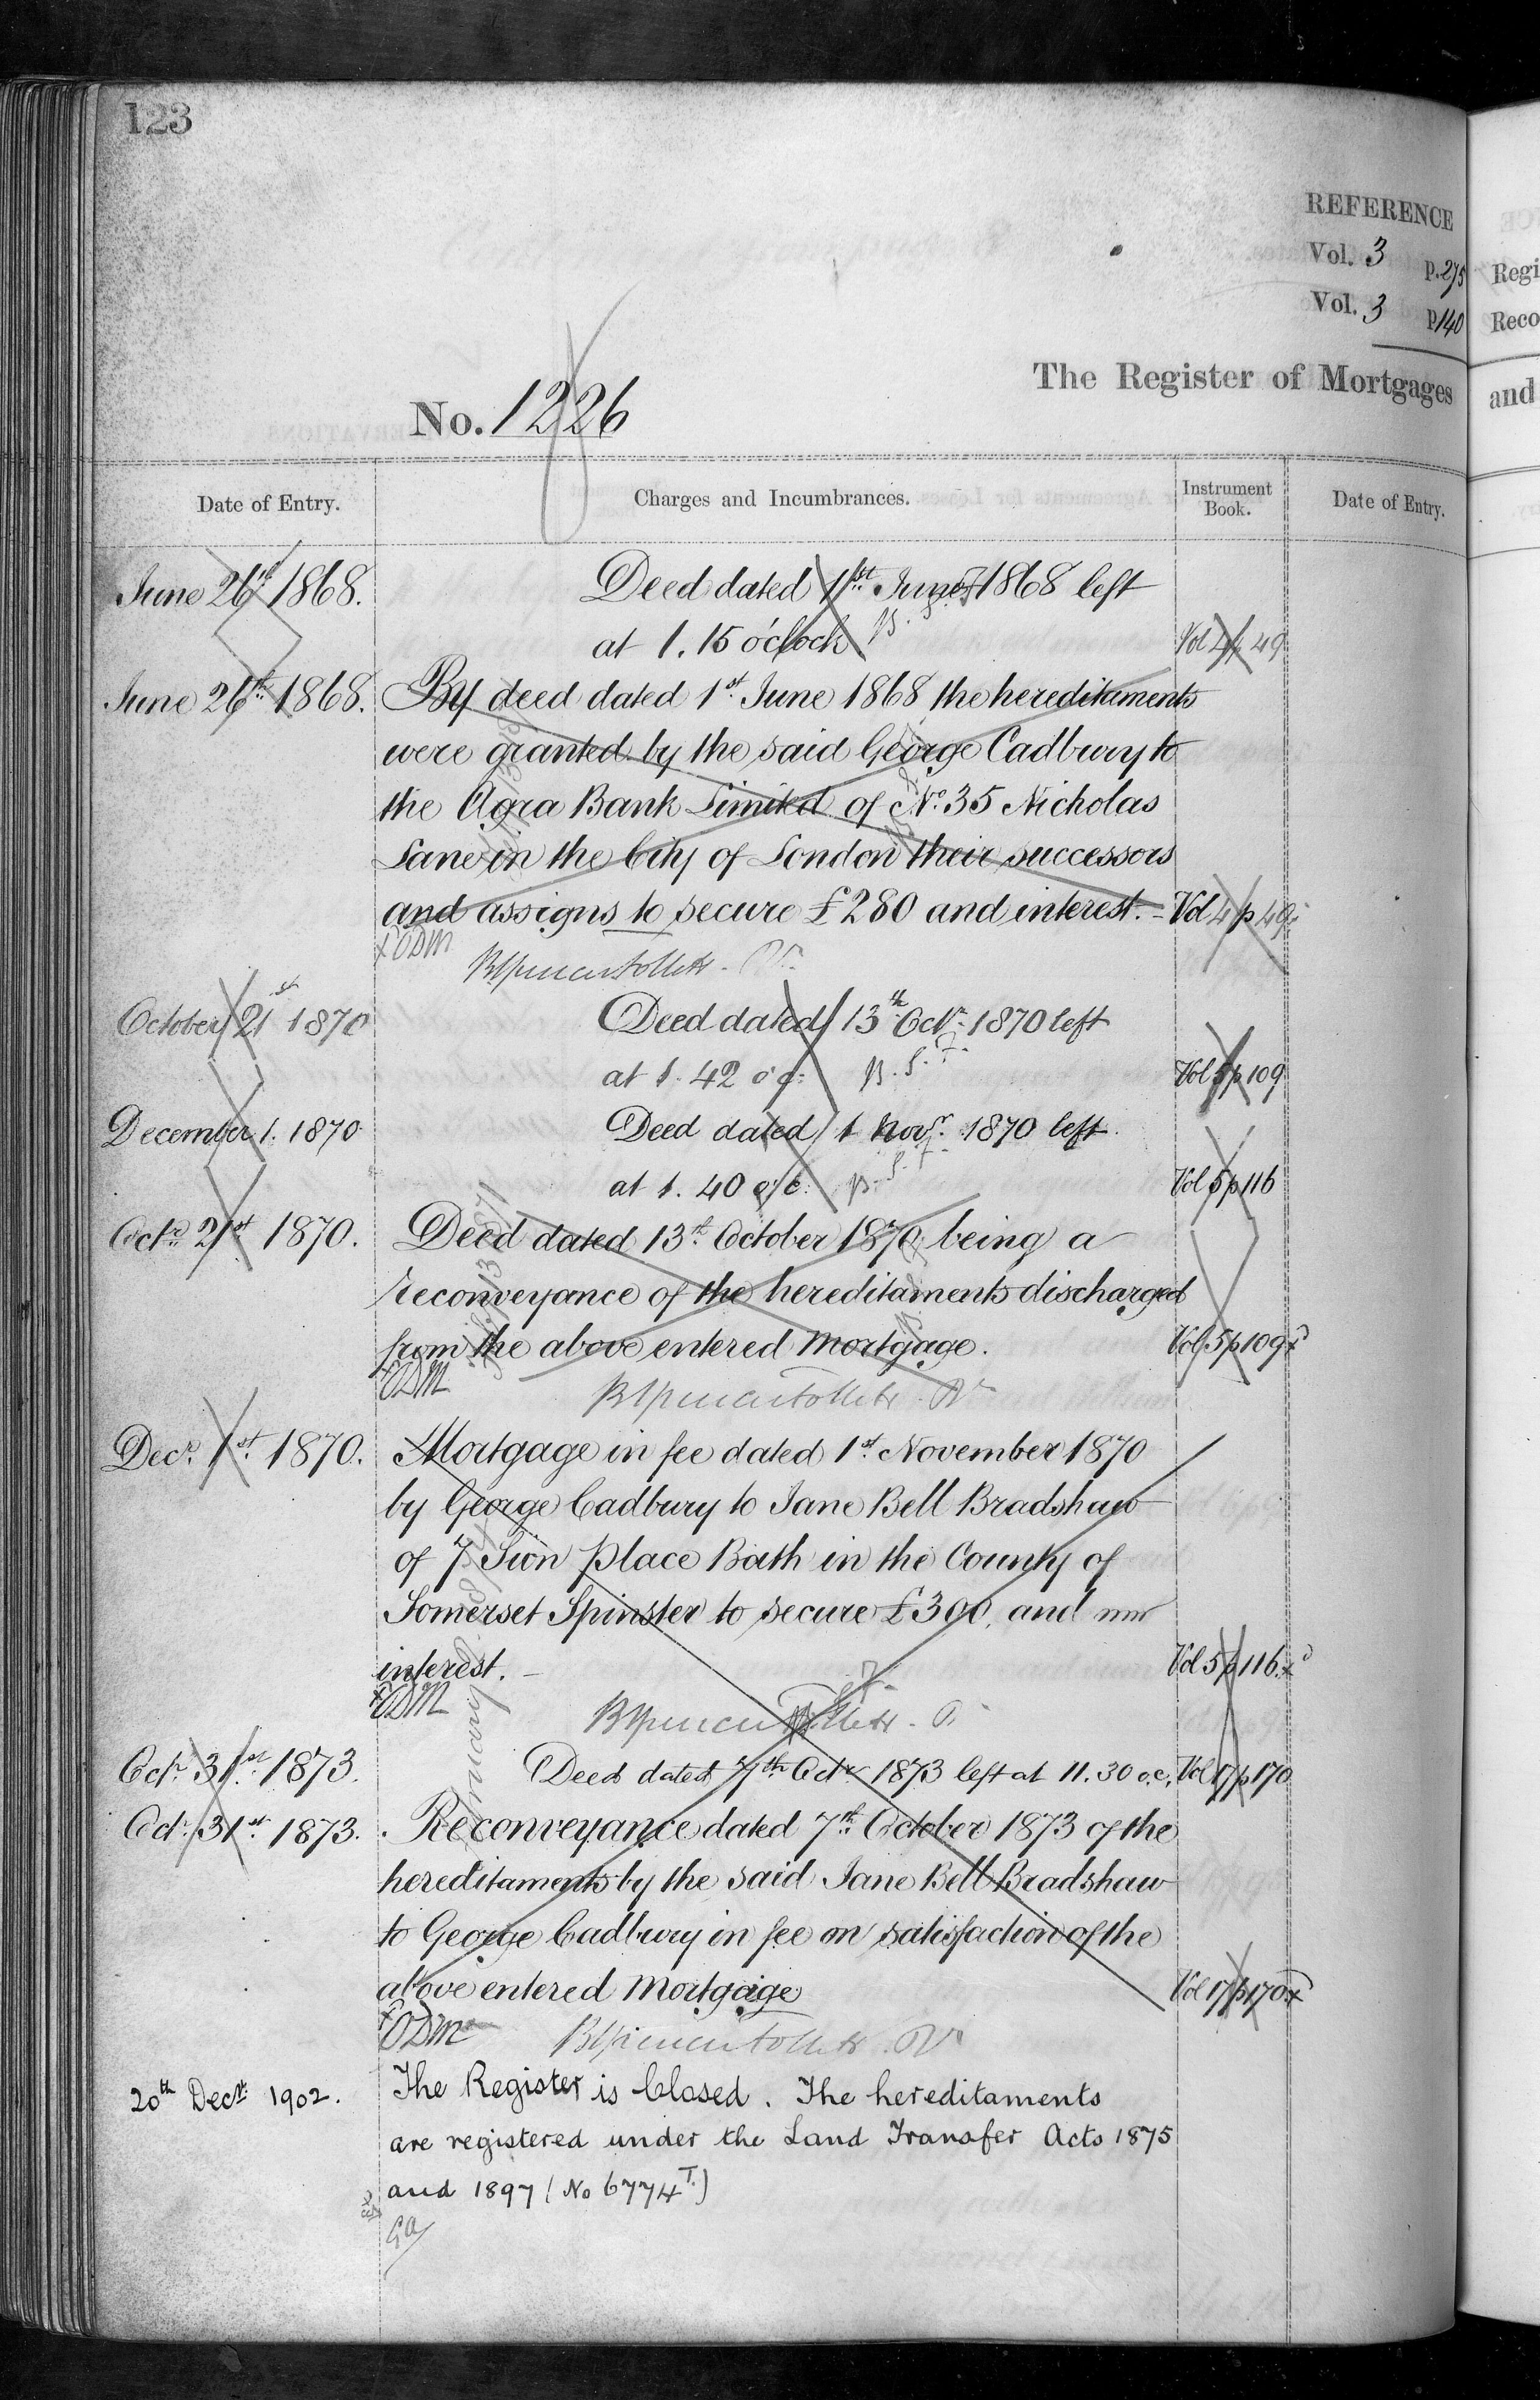 123
REFERENCE
Vol. 3 p. 275
Vol. 3 p 140
Regi
Reco
The Register of Mortgages
and
No. 1226
Date of Entry.
Charges and Incumbrances.
Instrument Book.
Date of Entry.
June 26th 1868.
Deed dated 1st June 1868 left
at 1.15 o'clock
Vol 4 p 49
June 26th 1868.
By deed dated 1st June 1868 the hereditaments
were granted by the said George Cadbury to
the Agra Bank Limited of No. 35 Nicholas
Lane in the City of London their successors
and assigns to secure £280 and interest. -
Vol 4 p 49
ODM
October 21st 1870
Deed dated 13th Octr. 1870 left
at 1.42 o'c:
Vol 5 p 109
December 1. 1870
Deed dated 1 Novr. 1870 left
at 1.40 o'c:
Vol 5 p 116
Octr. 21st 1870.
Deed dated 13th October 1870 being a
reconveyance of the hereditaments discharged
from the above entered Mortgage.
Vol 5 p 109
ODM
Decr. 1st 1870.
Mortgage in fee dated 1st November 1870
by George Cadbury to Jane Bell Bradshaw
of 7 Sion Place Bath in the County of
Somerset Spinster to secure £300. and
interest. -
Vol 5 p 116
ODM
Octr. 31st 1873.
Deed dated 7th Octr. 1873 left at 11.30 o.c.
Vol 17 p 170
Octr. 31st 1873.
Reconveyance dated 7th October 1873 of the
hereditaments by the said Jane Bell Bradshaw
to George Cadbury in fee on satisfaction of the
above entered Mortgage
Vol 17 p 170
ODM
20th Decr. 1902.
The Register is Closed. The hereditaments
are registered under the Land Transfer Acts 1875
and 1897 (No 6774 T.)